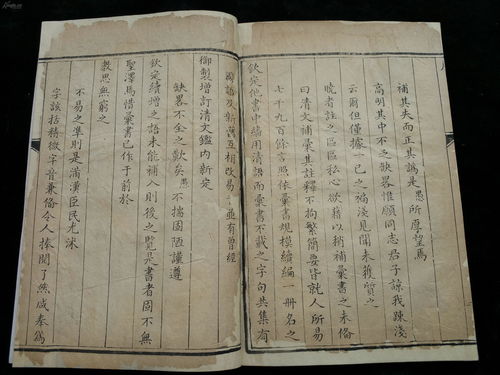 字該括精微字音兼俻令人捧閱了然咸奉為
不易之準則是滿漢臣民尤沭
教思無窮之
聖澤焉惜彙書已作于前於
欽定續增之語未能補入則後之覽是書者固不無
缺畧不全之歎矣愚不揣固陋謹遵
御製增訂清文鑑內新定
國語及新舊互相改易並有曾經
欽定他書中繙用清語而彙書不載之字句共集有
七千九百餘言照依彙書規模續編一冊名之
曰清文補彙其註釋不拘繁簡要皆就人所易
曉者註之區區私心欲藉以稍補彙書之未俻
云爾但僅據一己之褊淺見聞未獲質之
高明其中不乏缺畧惟願同志君子諒我踈淺
補其失而正其譌是愚所厚望焉